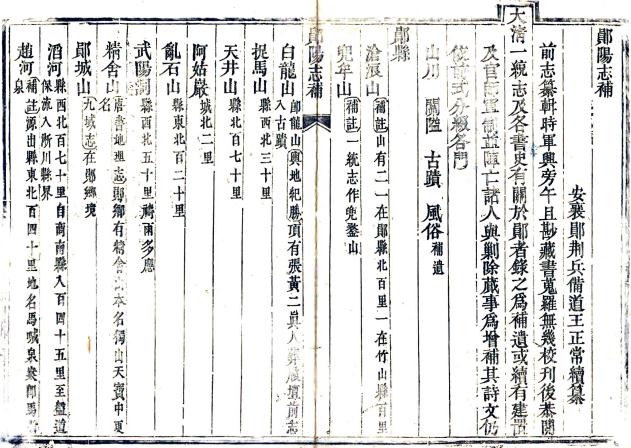 鄖陽志補
安襄鄖荊兵備道王正常續纂
前志纂輯時軍興旁午且尠藏書蒐羅無幾校刊後恭閱
大清一統志及各書史有關於鄖者錄之為補遺或續有建置
及官師軍制並陣亡諸人與剿除蕆事為增補其詩文仍
依前式分綴各門
山川 關隘 古蹟 風俗補遺
鄖縣
滄浪山補註山有二一在鄖縣北百里一在竹山縣百里
兜牟山補註一統志作兜鍪山
鄖陽志補
白龍山卽龍山輿地紀勝頂有張黃二眞人 前志入古蹟
捉馬山縣西北三十里
天井山縣北百七十里
阿姑巖城北二里
亂石山縣東北百二十里
武陽洞縣西北五十里禱雨多應
精舍山唐書地理志鄖鄉有精舍山本名獨山天寶中更名
鄖城山九域志在鄖鄉境
滔河縣西北百七十里自商南縣入百四十五里至 保流入淅川縣界
趙河補註源出縣東北百四十里地名馬喊泉 泉